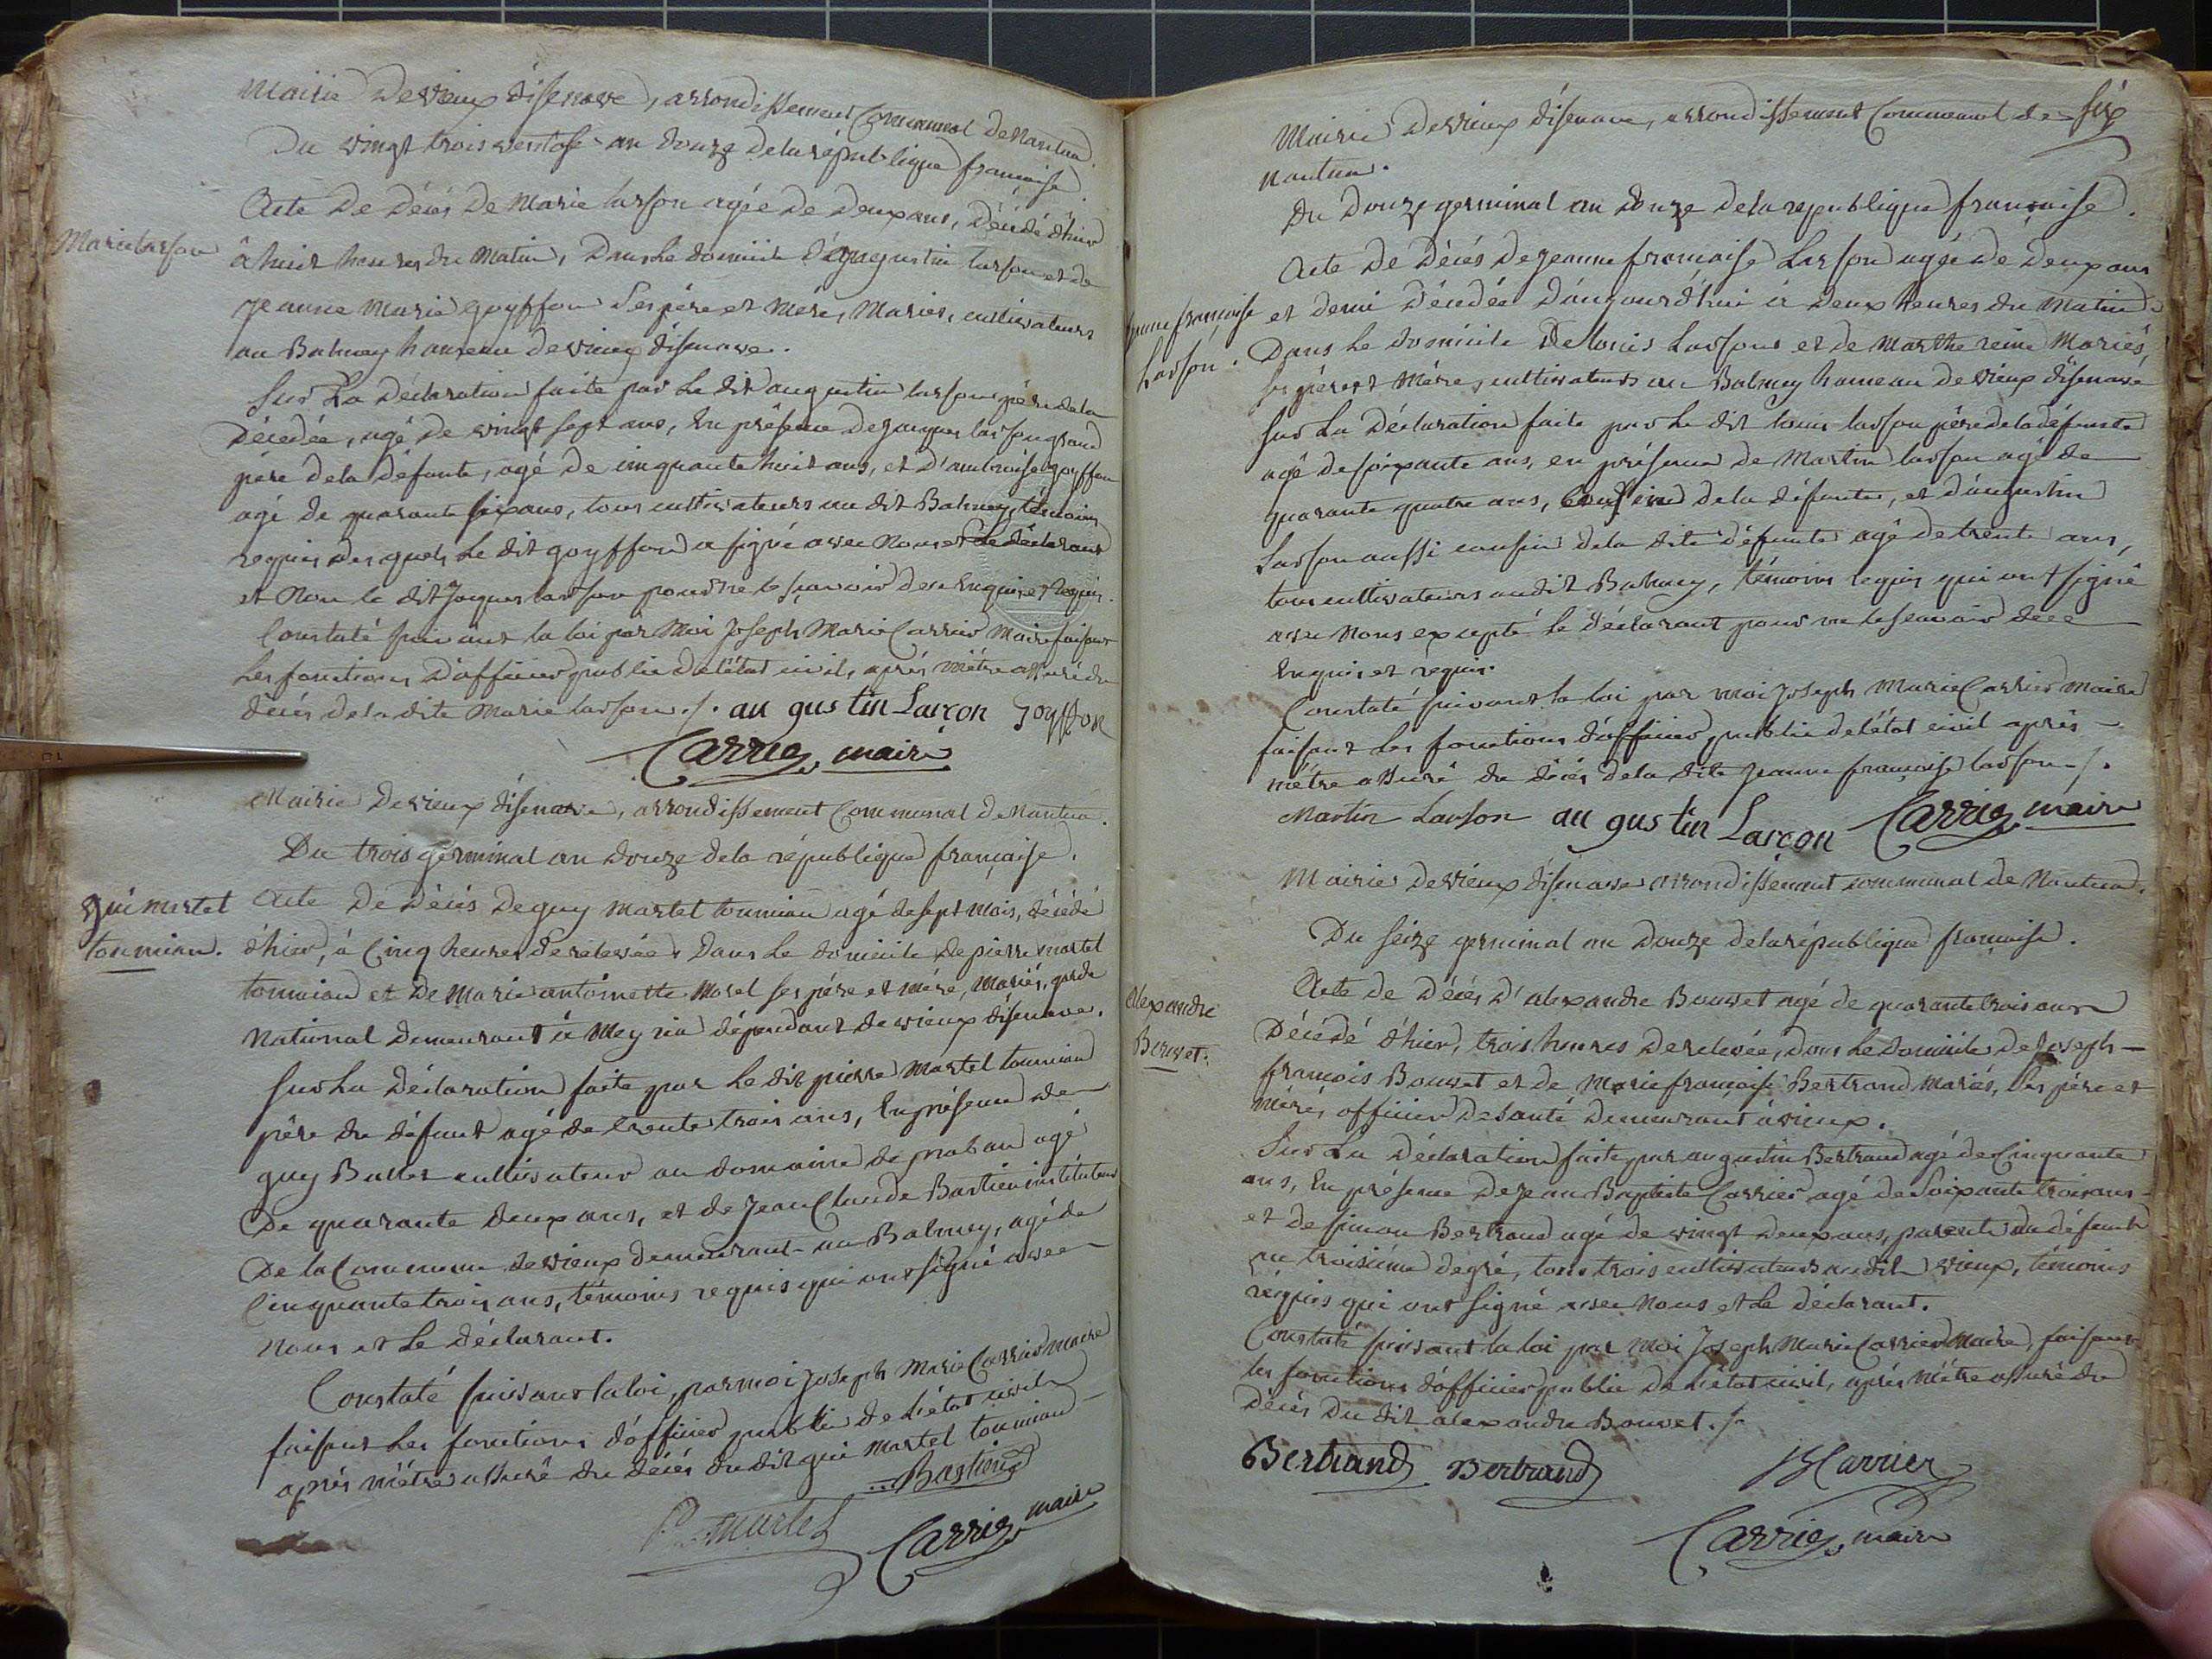 Mairie de vieux d'isenave, arrondissement Communal de Nantua.
Du vingt trois ventose an douze de la république française.
Acte de Décés de Marie larson agée de deux ans, décédé d'hier
Marie larson
à huit heures du Matin, Dans Le domicile d'augustin larson et de
jeanne Marie goyffon Ses pére et Mére, Mariés, cultivateurs
au Balmey hameau de vieux d'isenave.
Sur La Déclaration faite par Le dit augustin larson pére de la
Décedée, agé de vingt sept ans, En présence de jacques larson grand
pére de la défunte, agé de cinquante huit ans, et d'ambroise goyffon
agé de quarante six ans, tous cultivateurs au dit Balmey, témoins
requis des quels Le dit goyffon a signé avec Nous et Le déclarant
et Non le dit Jacques larson pour ne le sçavoir de ce Enquis et Requis.
Constaté suivant la loi par Moi Joseph Marie Carrier Maire faisant
Les fonctions D'officier public de l'état civil, aprés m'être assuré du
décés de la dite Marie larson ./. au gus tin Larçon Goyffon
Carrier, maire
Mairie de vieux d'isenave, arrondissement Communal de Nantua.
Du trois germinal an douze de la république française.
gui martel
tournian.
Acte De Décés de guy Martel tournian agé de sept mois, décédé
d'hier, à Cinq heures de relevée, Dans Le domicile de pierre martel
tournian et De Marie antoinette Morel ses pére et mére, Mariés, garde
National demeurant à Meyria dépendant de vieux d'isenave.
Sur La Déclaration faite par Le dit pierre Martel tournian
pére du défunt agé de trente trois ans, En présence de
guy Ballet cultivateur au domaine de praban agé
De quarante deux ans, et de Jean Claude Bastien instituteur
De la Commune de vieux demeurant au Balmey, agé de
Cinquante trois ans, témoins requis qui ont signé avec
Nous et Le déclarant.
Constaté suivant la loi, par moi Joseph Marie Carrier Maire
faisant Les fonctions d'officier public de L'état civil
aprés m'être assuré du décés du dit gui Martel tournian
Bastien
P. martel
Carrier, maire
Mairie De vieux d'isenave, arrondissement Communal de Six
Nantua.
Du Douze germinal an Douze de la république française.
Acte de Décés de jeanne françoise Larson agée de deux ans
françoise
Larson.
et demi décédée d'aujourd'hui à Deux heures du Matin
Dans Le domicile De louis Larson et de Marthe reine Mariés,
ses pére et Mére, cultivateurs au Balmey hameau de vieux d'isenave
Sur La Déclaration faite par Le dit louis larson pére de la défunte
agé de soixante ans, en présence de Martin larson agé de
quarante quatre ans, Cousin de la défunte, et d'augustin
Larson aussi cousin de la dite défunte agé de trente ans,
tous cultivateurs audit Balmey, témoins requis qui ont signé
avec Nous excepté Le déclarant pour ne le sçavoir de ce
Enquis et requis.
Constaté suivant la loi par moi Joseph Marie Carrier Maire
faisant Les fonctions d'officier public de l'état civil aprés
m'être assuré du décés de la dite jeanne françoise larson ./.
Martin Larson au gus tin Larçon Carrier, maire
Mairie de vieux d'isenave arrondissement communal de Nantua.
Du seize germinal an Douze de la république française.
Alexandre
Bouvet.
Acte de Décés D'alexandre Bouvet agé de quarante trois ans
Décédé d'hier, trois heures de relevée, dans Le Domicile de Joseph
françois Bouvet et de Marie françoise Bertrand Mariés, Ses pére et
Mére, officier de santé demeurant à vieux.
Sur La Déclaration faite par augustin Bertrand agé de Cinquante
ans, En présence de Jean Baptiste Carrier agé de Soixante trois ans
et de simon Bertrand agé de vingt deux ans, parents du défunt
au troisiéme degré, tous trois cultivateurs audit vieux, témoins
requis qui ont signé avec Nous et Le déclarant.
Constaté suivant la loi par Moi Joseph Marie Carrier Maire, faisant
les fonctions d'officier public de L'état civil, aprés M'être assuré du
Décés Du dit alexandre Bouvet ./.
Bertrand Bertrand JB Carrier
Carrier, maire